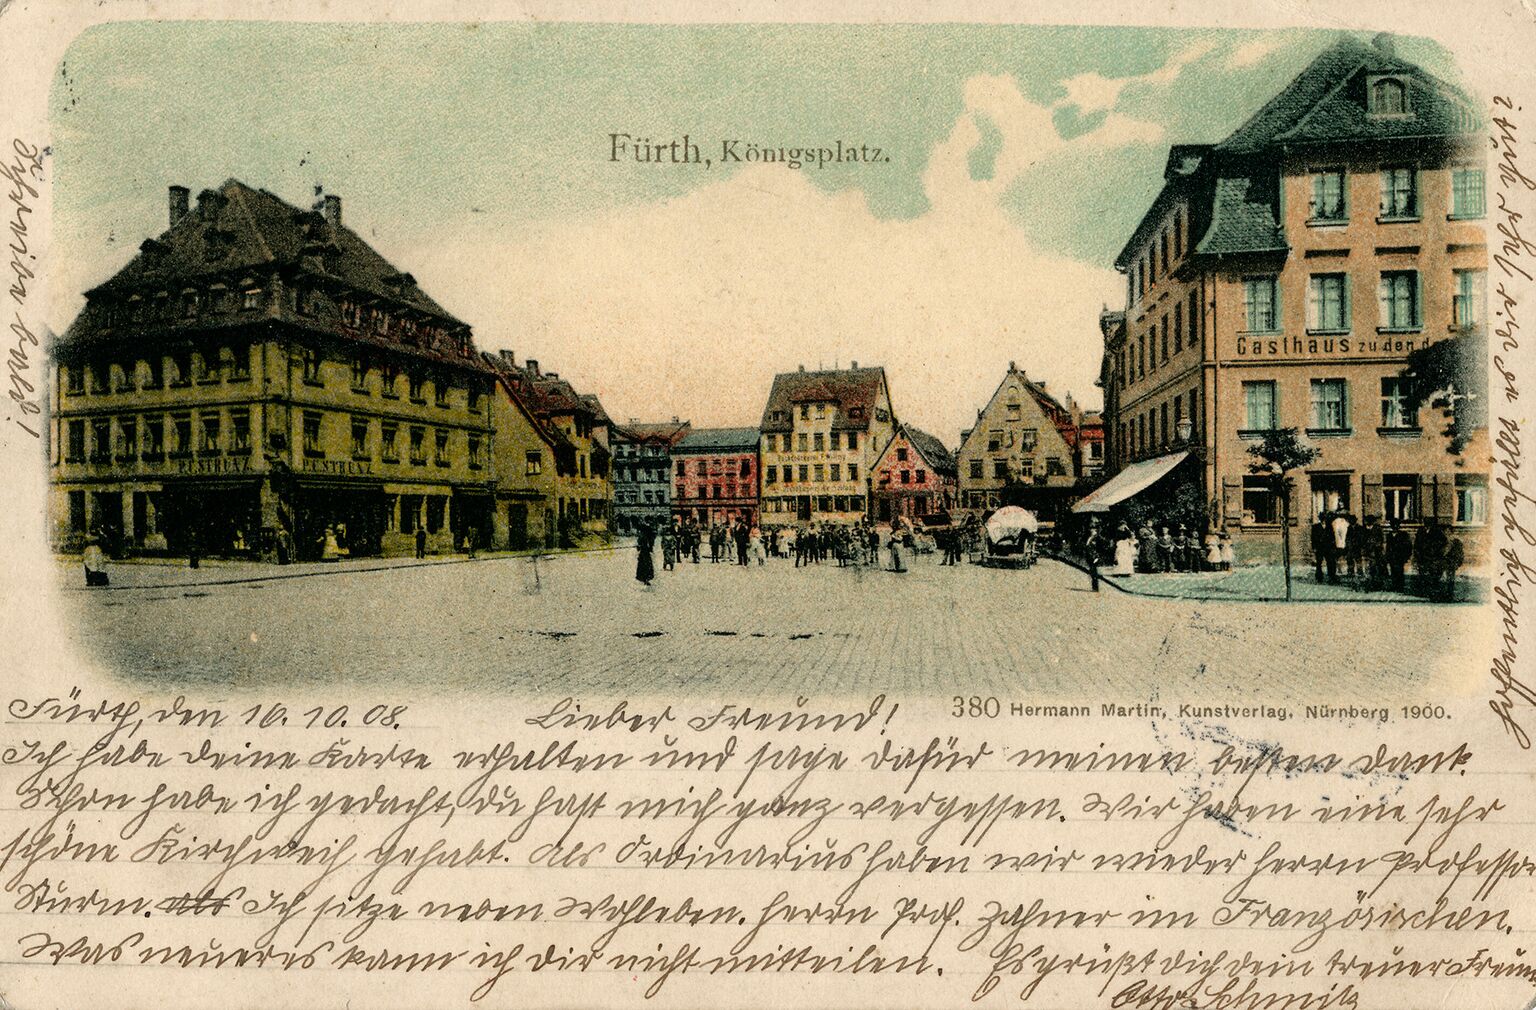 Fürth, Königsplatz.
P. USTRUZ
P. USTRUZ
Gasthaus zu den d
380 Hermann Martin, Kunstverlag, Nürnberg 1900.
Fürth, den 16. 10. 08. Lieber Freund!
Ich habe deine Karte erhalten und sage dafür meinen besten Dank.
Schon habe ich gedacht, du hast mich ganz vergessen. Wir haben eine sehr
schöne Kirchweih gehabt. Als Ordinarius haben wir wieder Herrn Professor
Sturm. Als Ich sitze neben Wohleben. Herrn Prof. Zahner im Französischen.
Was neueres kann ich dir nicht mitteilen. Es grüßt dich dein treuer Freund
Otto Schmitz
Schreibe bald!
Hoffentlich